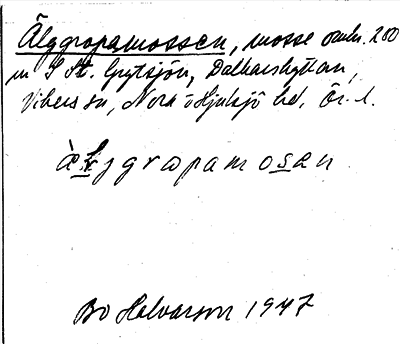 Älggropamossen, mosse omkr. 200
m S St. Grytsjön, Dalkarshyttan,
Vikers sn, Nora o Hjulsjö hd, Ör. l.
àljgropamosen
Bo Halvarson 1947